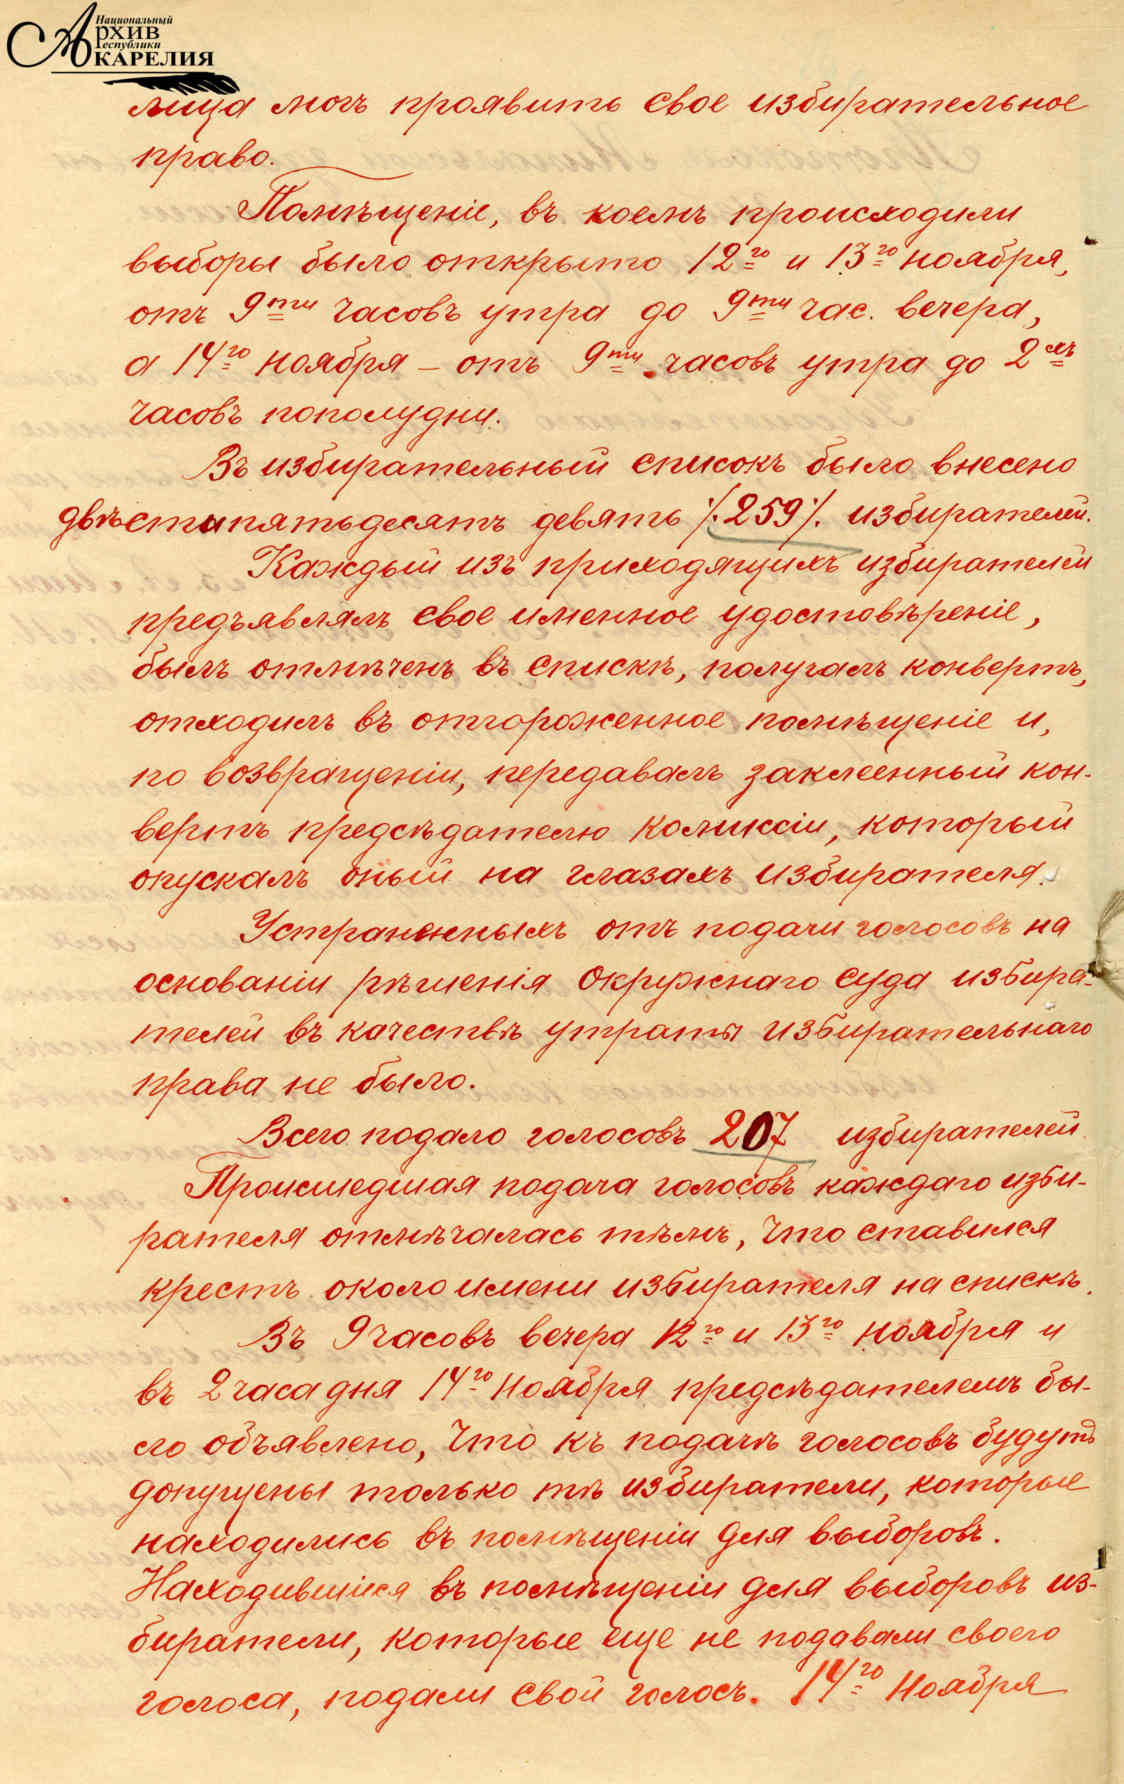 Национальный
Архив
Республики
Карелия
лица могъ проявить свое избирательное
право.
Помѣщеніе, въ коемъ происходили
выборы было открыто 12го и 13го ноября,
отъ 9ти часовъ утра до 9ти час. вечера,
а 14го ноября – отъ 9ти часовъ утра до 2хъ
часовъ пополудни.
Въ избирательный списокъ было внесено
двѣстипятьдесятъ девять /.259/. избирателей.
Каждый изъ приходящихъ избирателей
предъявлялъ свое именное удостовѣреніе,
былъ отмѣченъ въ спискѣ, получалъ конвертъ,
отходилъ въ отгороженное помѣщеніе и,
по возвращеніи, передавалъ заклеенный кон-
вертъ предсѣдателю комиссіи, который
опускалъ оный на глазахъ избирателя.
Устраненныхъ отъ подачи голосовъ на
основаніи рѣшенія Окружнаго Суда избира-
телей въ качествѣ утраты избирательнаго
права не было.
Всего подало голосовъ 207 избирателей
Происшедшая подача голосовъ каждаго изби-
рателя отмѣчалась тѣмъ, что ставился
крестъ около имени избирателя на спискѣ.
Въ 9 часовъ вечера 12го и 13го ноября и
въ 2 часа дня 14го ноября предсѣдателемъ бы-
ло объявлено, что къ подачѣ голосовъ будутъ
допущены только тѣ избиратели, которые
находились въ помѣщеніи для выборовъ.
Находившіися въ помѣщеніи для выборовъ из-
биратели, которые еще не подавали своего
голоса, подали свой голосъ. 14го Ноября